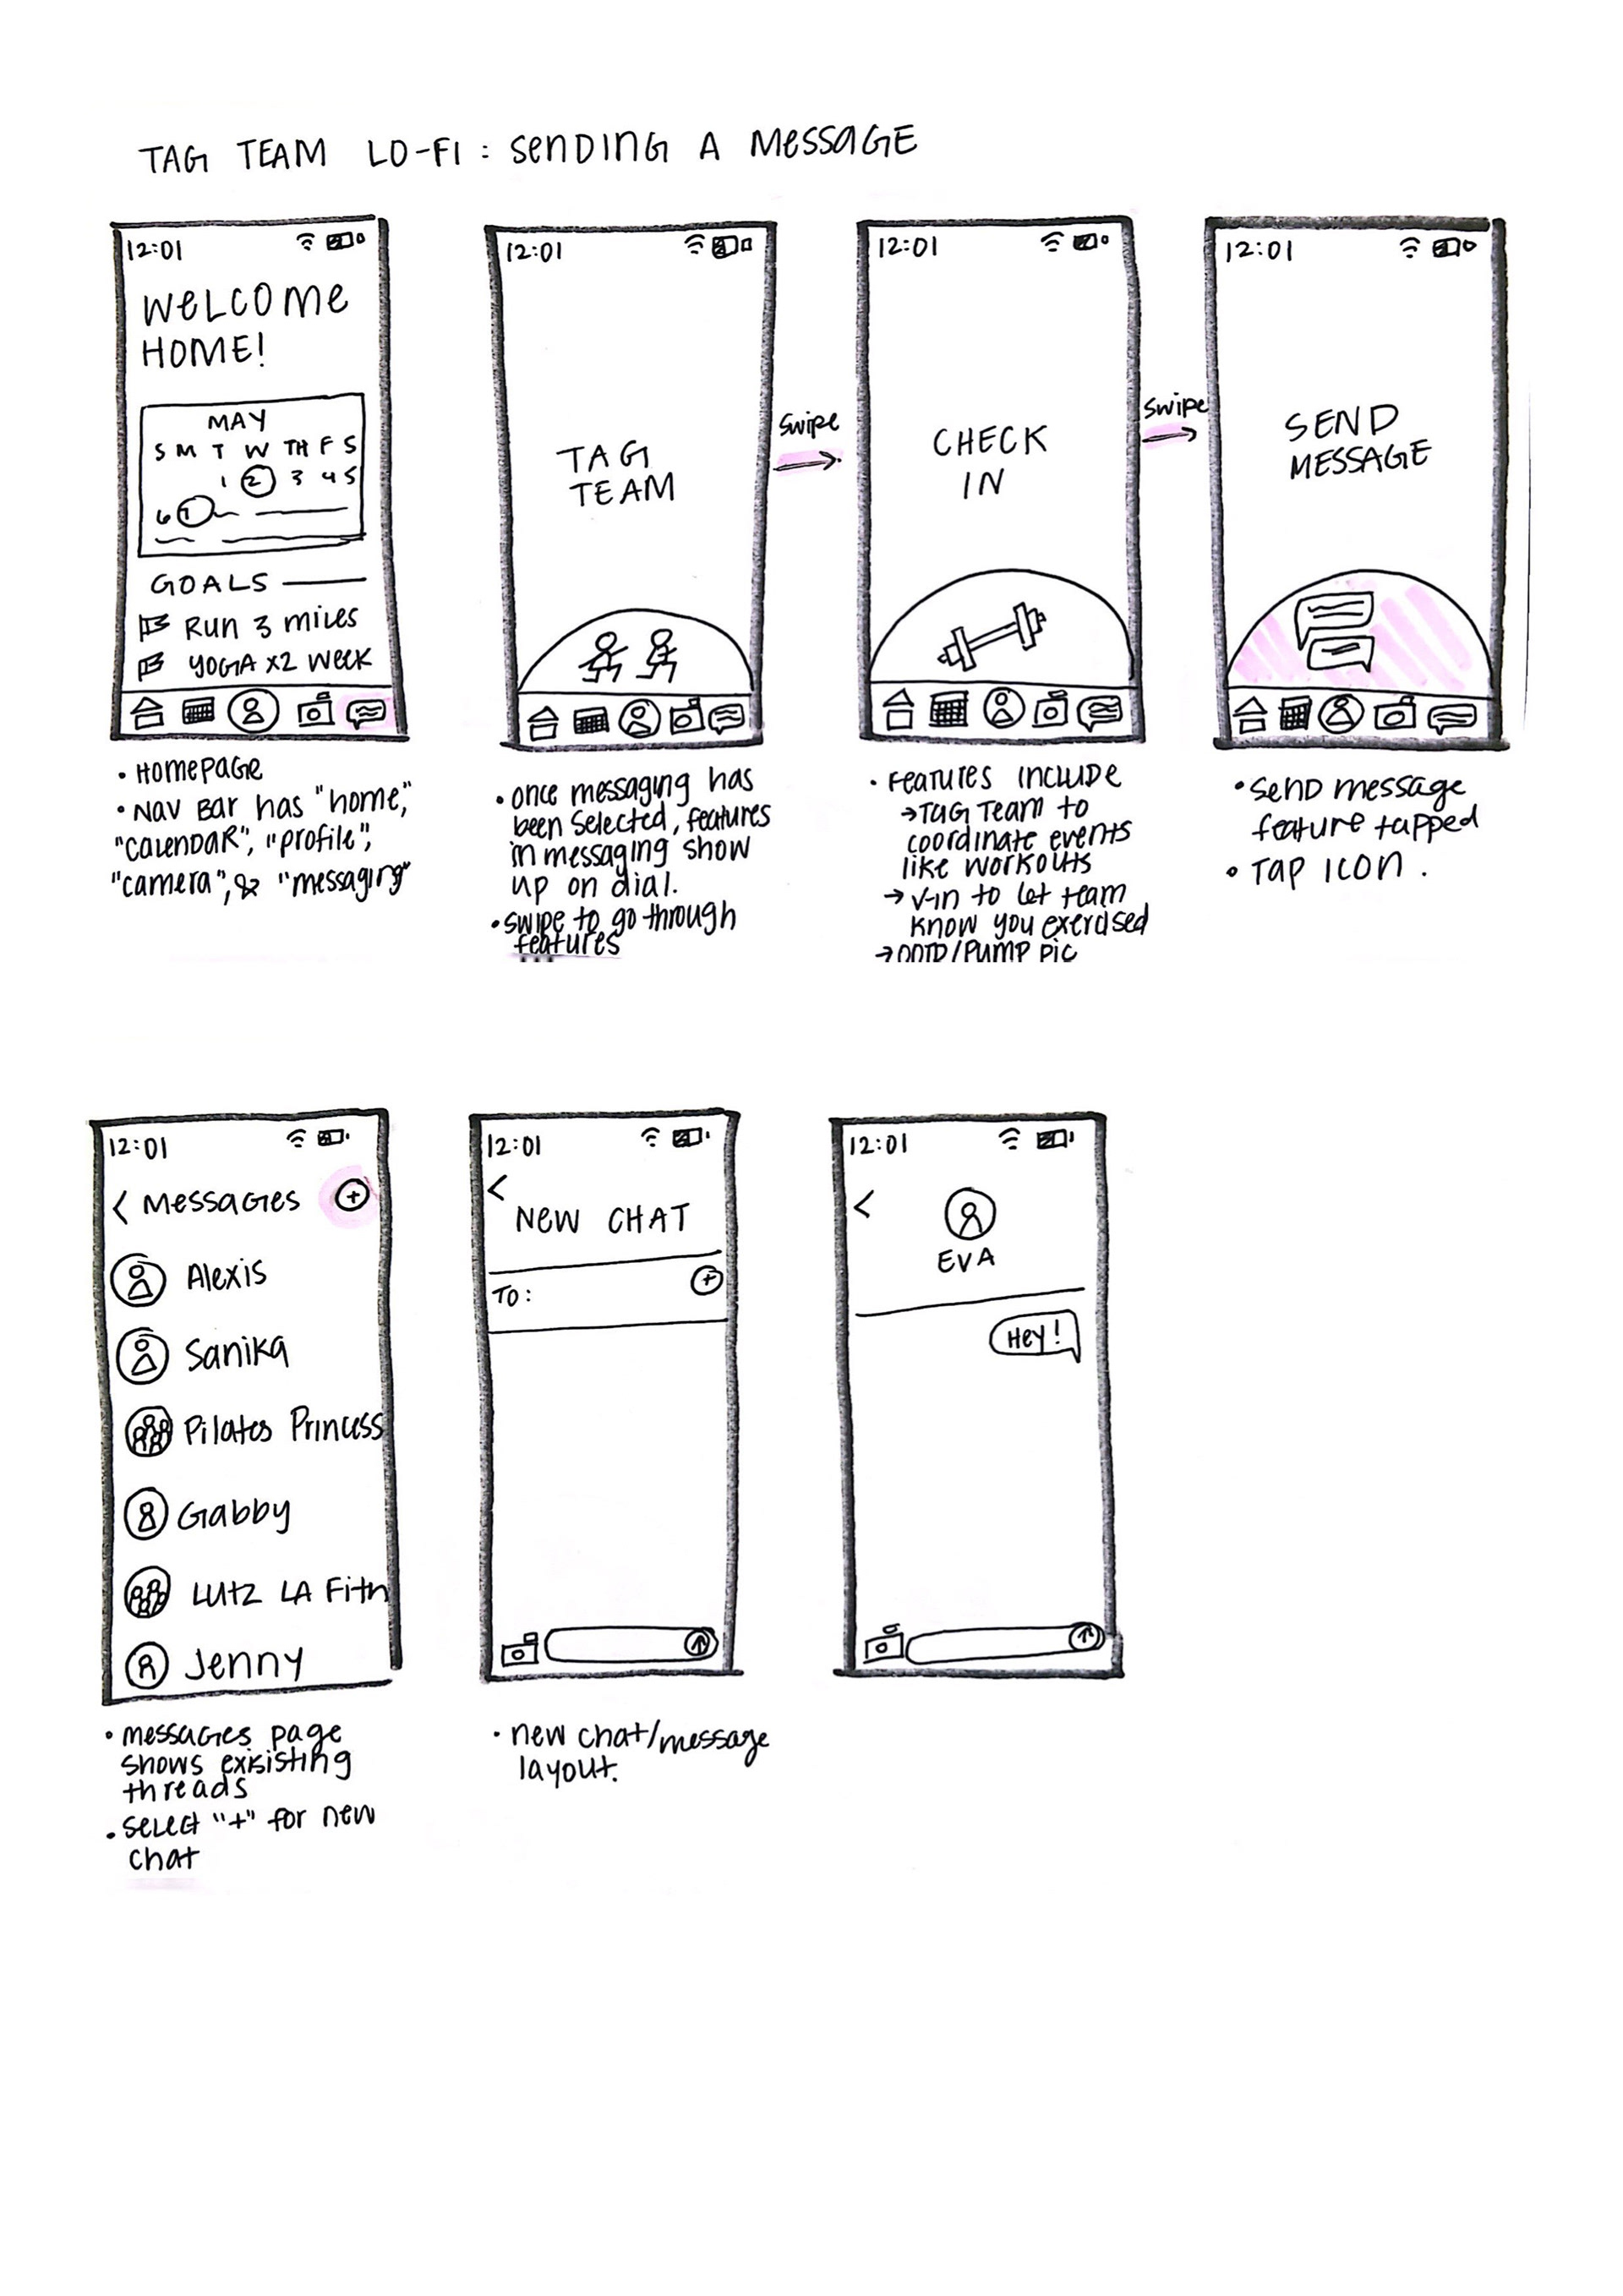 TAG TEAM LO-FI: SENDING A MESSAGE
12:01
WELCOME
HOME!
MAY
S M T W TH F S
1 2 3 4 5
6 7
GOALS
RUN 3 miles
YOGA x2 WEEK
• HOMEPAGE
• NAV BAR has "home",
"CALENDAR", "profile",
"camera", & "messaging"
12:01
TAG
TEAM
• once messaging has
been selected, features
in messaging show
up on dial.
• swipe to go through
features
swipe
12:01
CHECK
IN
• Features INCLUDE
→ TAG TEAM to
coordinate events
like workouts
→ √-in to let team
know you exercised
→ OOTD/PUMP pic
swipe
12:01
SEND
MESSAGE
• Send message
feature tapped
• TAP ICON.
12:01
< Messages +
Alexis
Sanika
Pilates Princess
Gabby
LUTZ LA Fitn
Jenny
• messages page
shows exisisting
threads
• select "+" for new
chat
12:01
<
NEW CHAT
TO: +
• new chat/message
layout.
12:01
<
EVA
Hey!